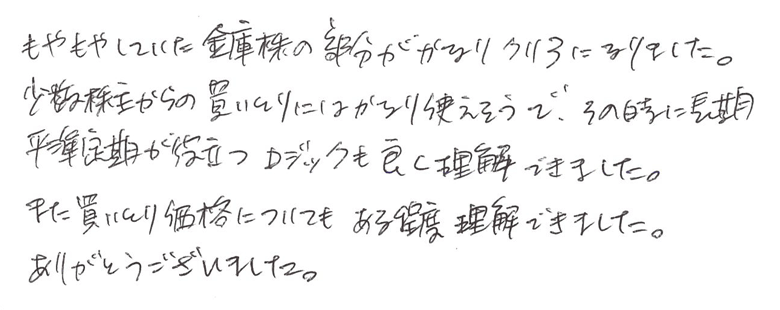 もやもやしていた金庫株の部分がかなりクリアになりました。
少数株主からの買いとりにはかなり使えそうで、その時に長期
平準定期が役立つロジックも良く理解できました。
また買いとり価格についてもある程度理解できました。
ありがとうございました。